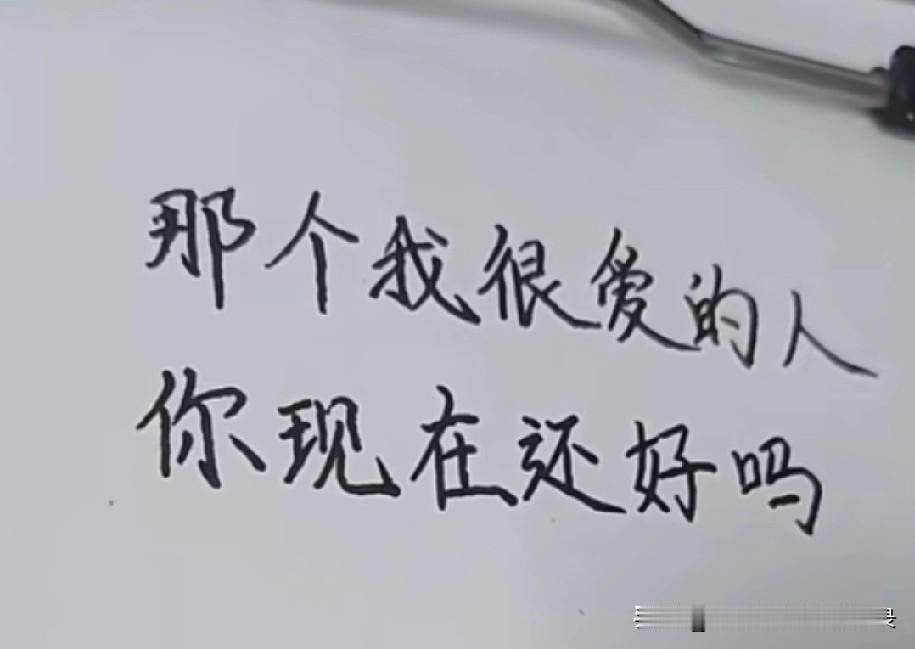 那个我很爱的人
你现在还好吗